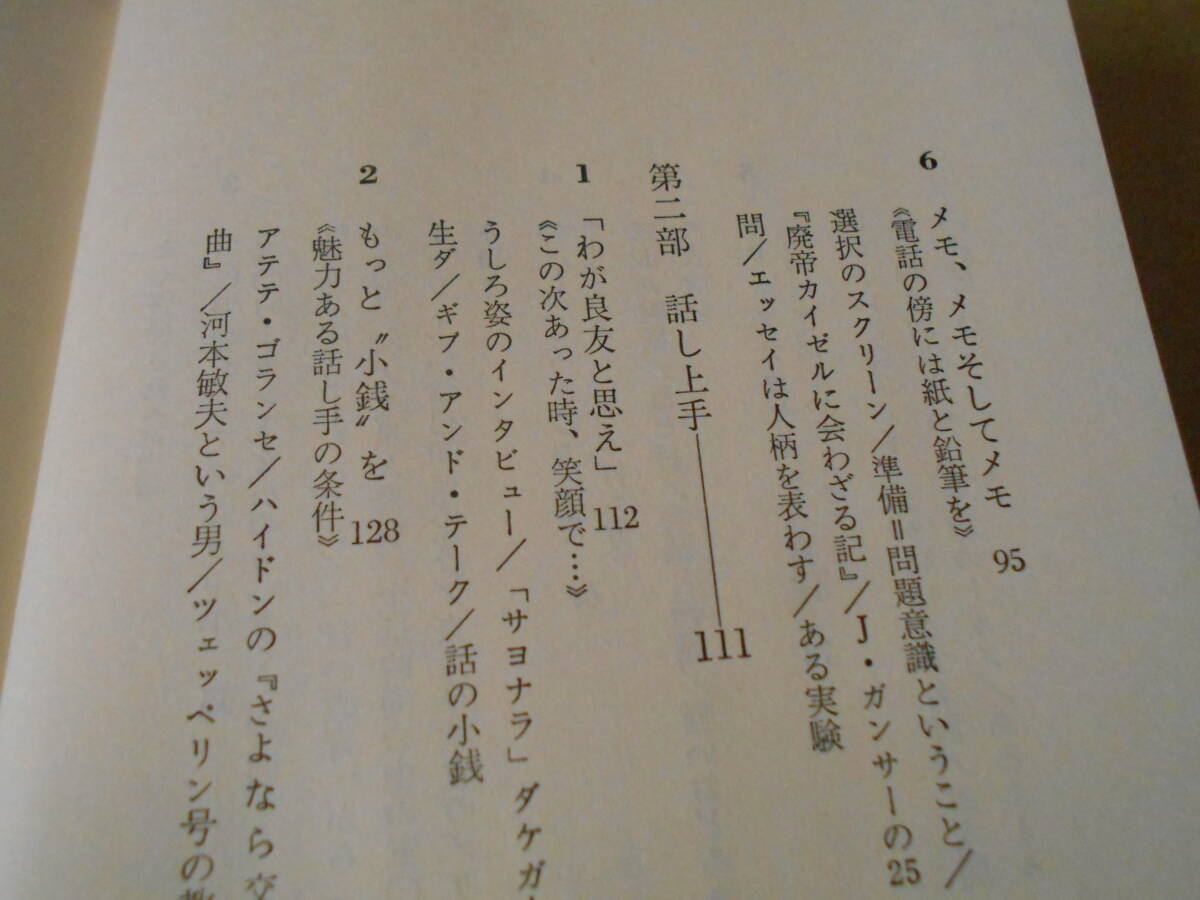 6
メモ、メモそしてメモ 95
《電話の傍には紙と鉛筆を》
選択のスクリーン／準備＝問題意識ということ／
『廃帝カイゼルに会わざる記』／J・ガンサーの25
問／エッセイは人柄を表わす／ある実験
第二部 話し上手 111
1
「わが良友と思え」 112
《この次あった時、笑顔で…》
うしろ姿のインタビュー／「サヨナラ」ダケガ
生ダ／ギブ・アンド・テーク／話の小銭
2
もっと〝小銭〟を 128
《魅力ある話し手の条件》
アテテ・ゴランセ／ハイドンの『さよなら交
曲』／河本敏夫という男／ツェッペリン号の